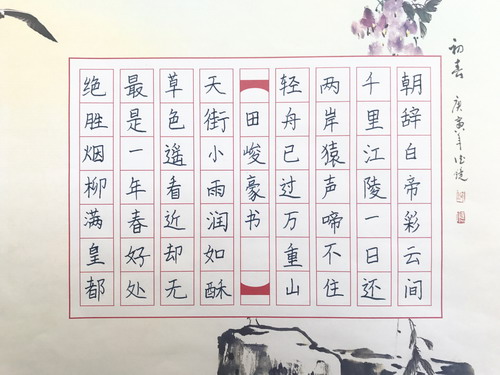 朝辞白帝彩云间
千里江陵一日还
两岸猿声啼不住
轻舟已过万重山
田峻豪书
天街小雨润如酥
草色遥看近却无
最是一年春好处
绝胜烟柳满皇都
初春
庚寅年